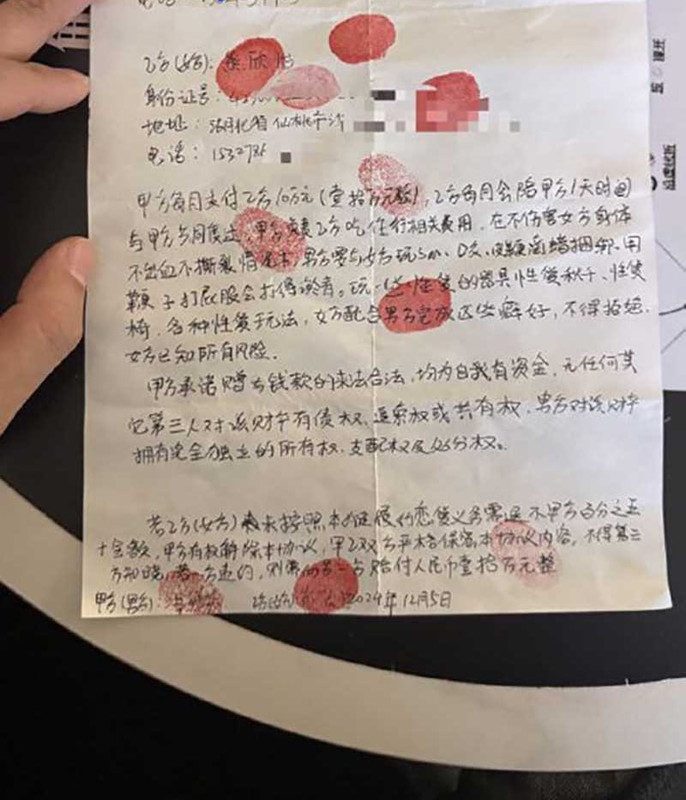 乙方(女方):
身份证号:
地址: 湖北省仙桃市沙
电话: 1532786
甲方每月支付乙方10万元(壹拾万元整),乙方每月会陪甲方1天时间
与甲方共同度过,甲方负责乙方吃住行相关费用,在不伤害女方身体
不出血不撕裂情况下,男方要与女方玩sm、皮鞭滴蜡捆绑、用
鞭子打屁股会打得淤青。玩一些性爱的器具性爱秋千、性爱
椅,各种性爱玩法,女方配合男方完成这些癖好,不得拒绝,
女方已知所有风险。
甲方承诺赠与钱款的来法合法,均为自我有资金,无任何其
它第三人对该财产有债权、追索权或共有权,男方对该财产
拥有完全独立的所有权、支配权及处分权。
若乙方(女方)未按照本 恋爱义务需退 甲方百分之五
十金额,甲方有权解除本协议,甲乙双方严格保密本协议内容,不得第三
方知晓,若一方违约,则需向另一方赔付人民币壹拾万元整
甲方(男方): 2024年12月5日